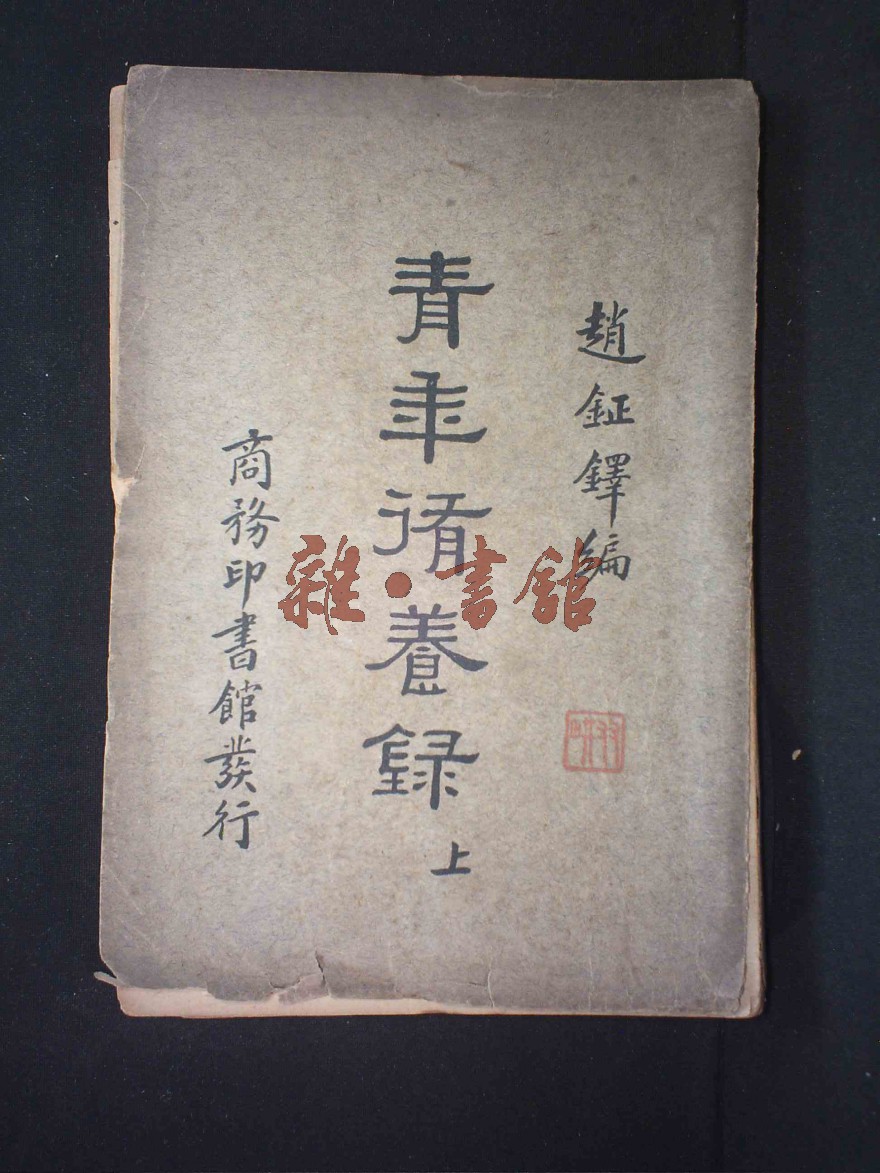 趙鉦鐸編
青年脩養録
上
商務印書館發行
雜·書館